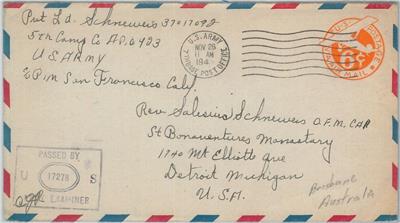 Pvt L.d. Schneweis 37017092
5th Camp Co A.P.O 923
U.S ARMY
% P.M San Francisco Calif.
U.S. ARMY
NOV 26
11 AM
194
POSTAL SERVICE
U.S. POSTAGE
6¢
AIR MAIL
Rev. Salesius Schneweis O.F.M. CAP.
St Bonaventures Monastary
1740 Mt. Elliott Ave
Detroit Michigan
U.S.A.
PASSED BY
U 17278 S
EXAMINER
Brisbane
Australia